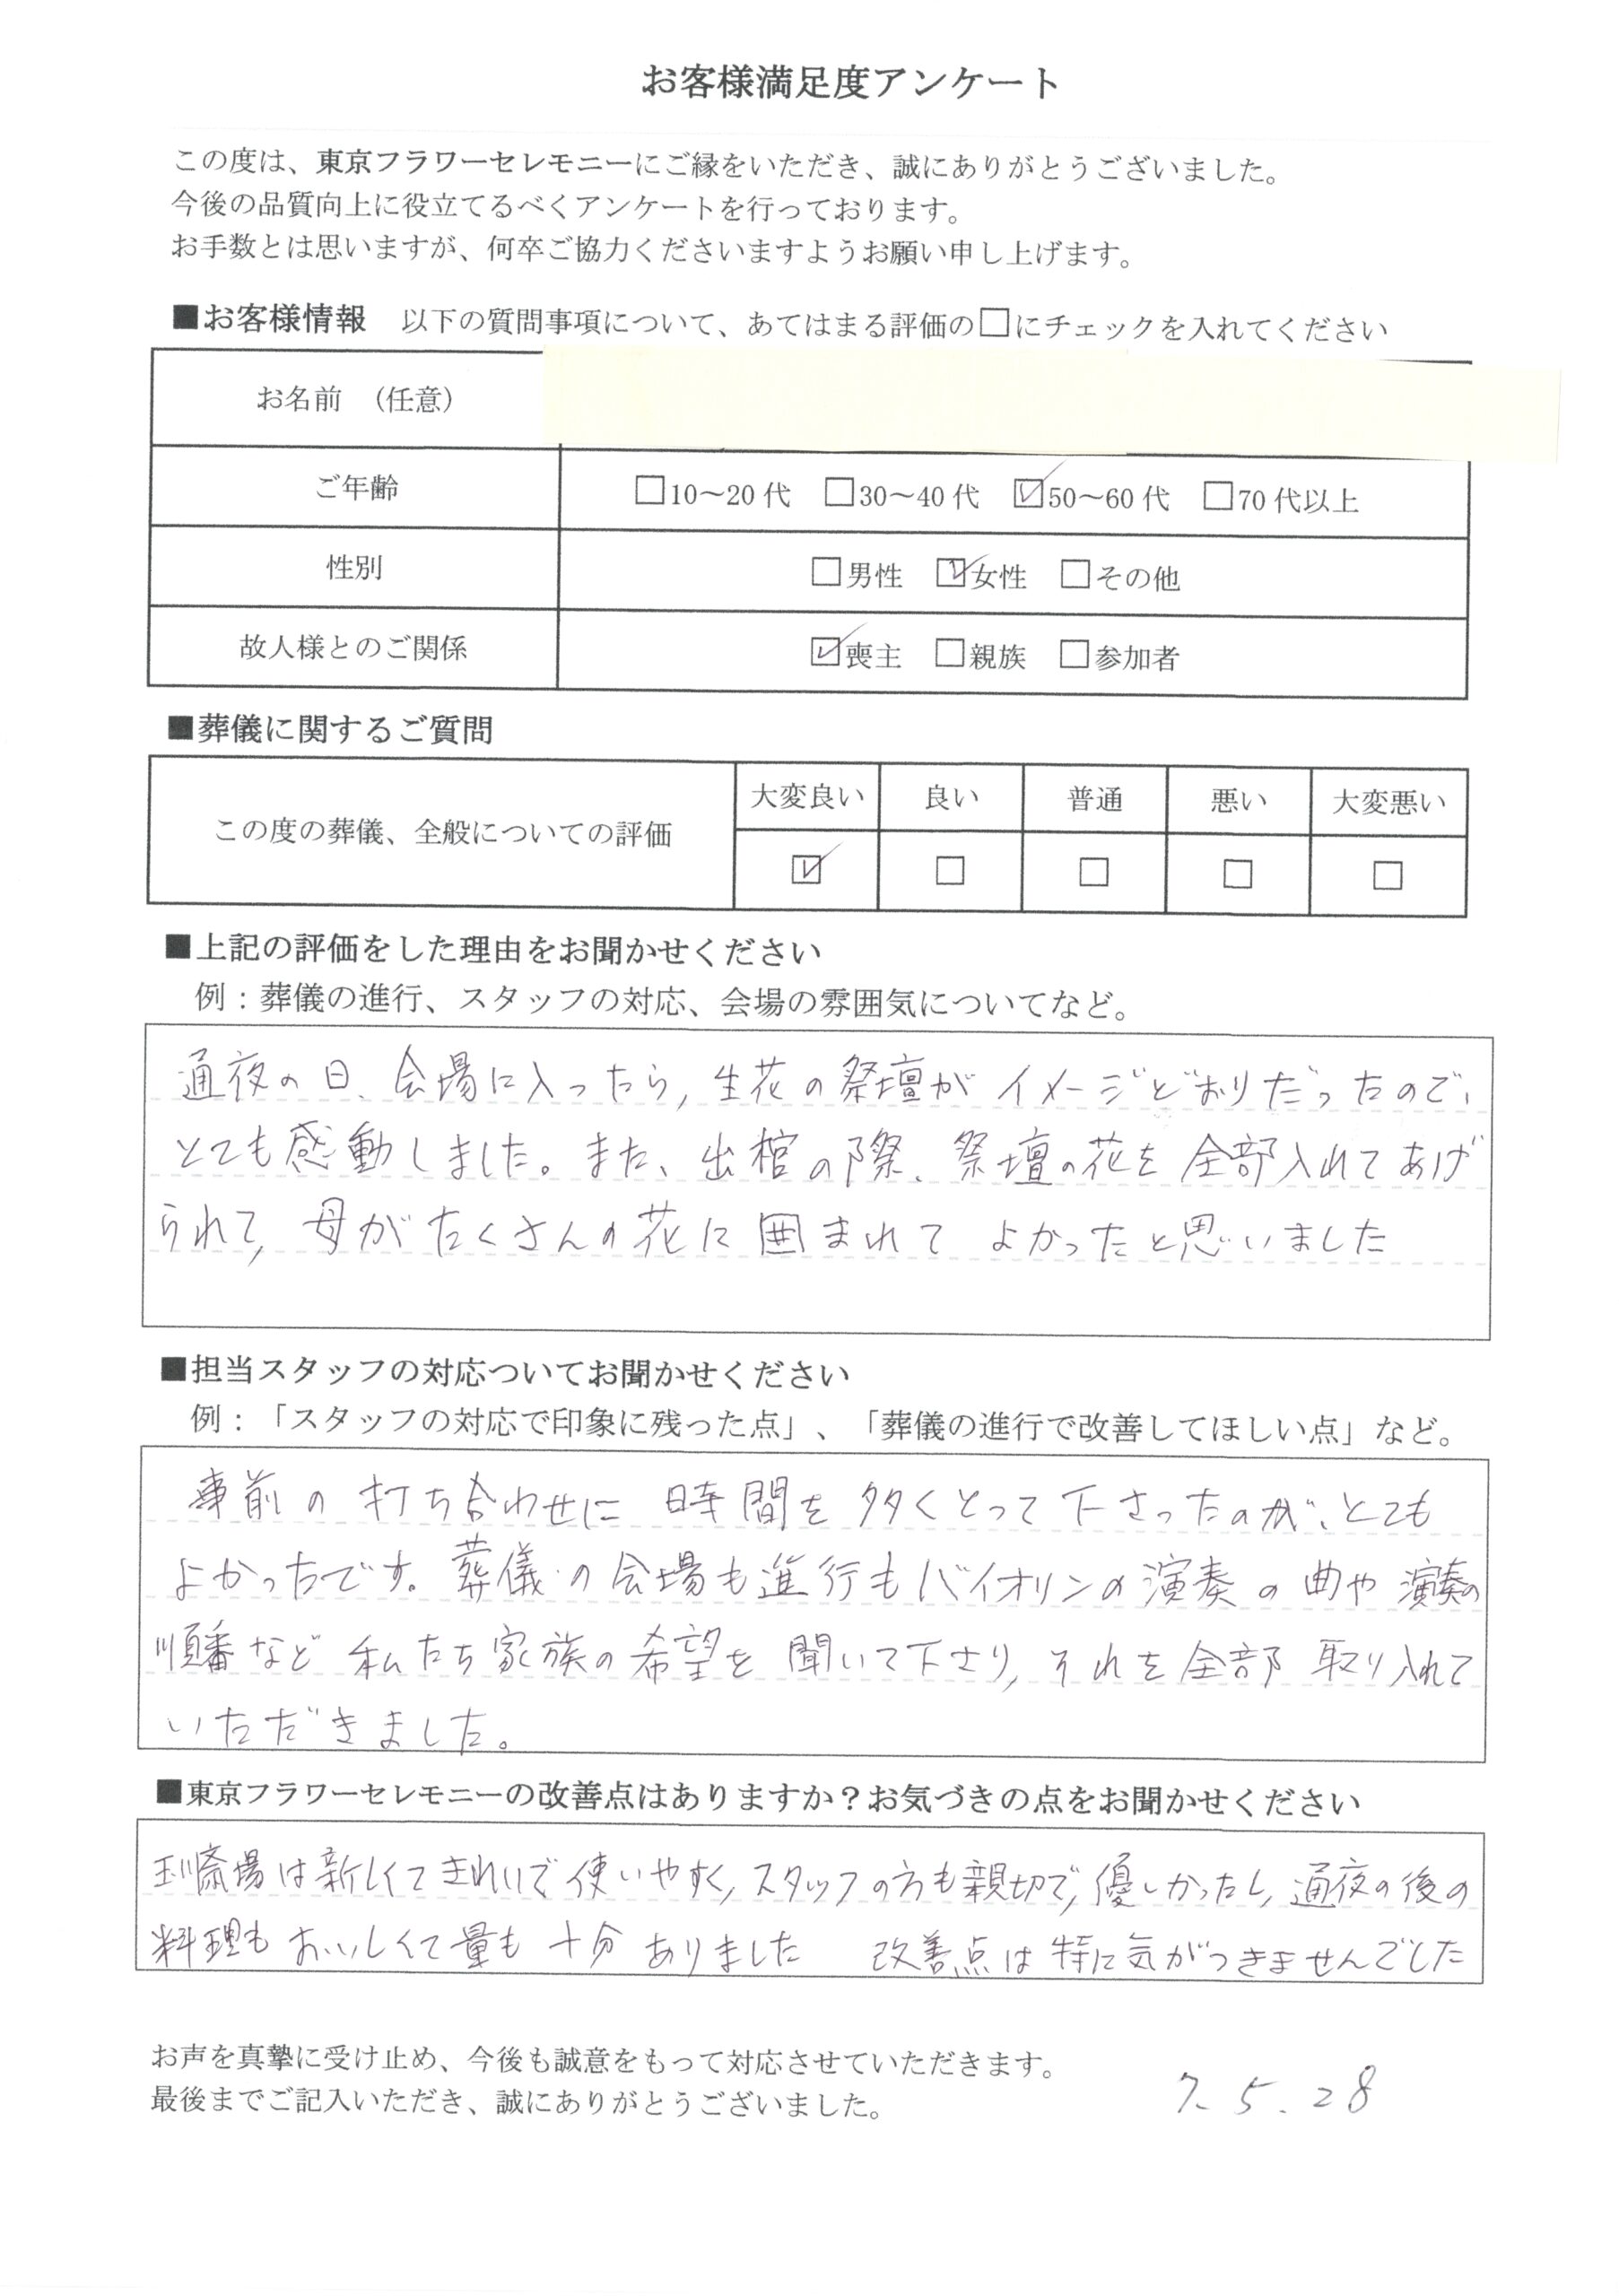 お客様満足度アンケート
この度は、東京フラワーセレモニーにご縁をいただき、誠にありがとうございました。
今後の品質向上に役立てるべくアンケートを行っております。
お手数とは思いますが、何卒ご協力くださいますようお願い申し上げます。
■お客様情報　以下の質問事項について、あてはまる評価の□にチェックを入れてください
お名前　（任意）
ご年齢　□10～20 代　□30～40 代　☑50～60 代　□70 代以上
性別　□男性　☑女性　□その他
故人様とのご関係　☑喪主　□親族　□参加者
■葬儀に関するご質問
大変良い　良い　普通　悪い　大変悪い
この度の葬儀、全般についての評価　☑　□　□　□　□
■上記の評価をした理由をお聞かせください
例：葬儀の進行、スタッフの対応、会場の雰囲気についてなど。
通夜の日、会場に入ったら、生花の祭壇がイメージどおりだったので、
とても感動しました。また、出棺の際、祭壇の花を全部入れてあげ
られて、母がたくさんの花に囲まれてよかったと思いました
■担当スタッフの対応ついてお聞かせください
例：「スタッフの対応で印象に残った点」、「葬儀の進行で改善してほしい点」など。
事前の打ち合わせに時間を多くとって下さったのが、とても
よかったです。葬儀の会場も進行もバイオリンの演奏の曲や演奏の
順番など私たち家族の希望を聞いて下さり、それを全部取り入れて
いただきました。
■東京フラワーセレモニーの改善点はありますか？お気づきの点をお聞かせください
斎場は新しくてきれいで使いやすく、スタッフの方も親切で、優しかったし、通夜の後の
料理もおいしくて量も十分ありました　改善点は特に気がつきませんでした
お声を真摯に受け止め、今後も誠意をもって対応させていただきます。
最後までご記入いただき、誠にありがとうございました。
7.5.28